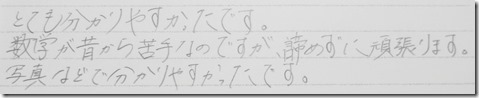 とても分かりやすかったです。
数学が昔から苦手なのですが、諦めずに、頑張ります。
写真などで分かりやすかったです。